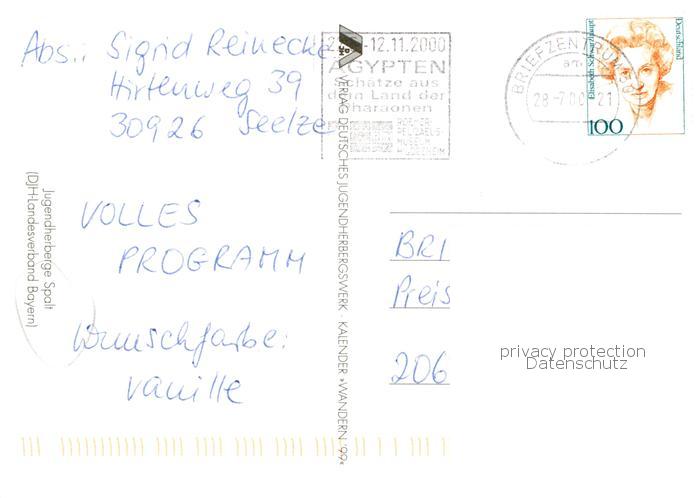 Abs.: Sigrid Reinecke
Hirtenweg 39
30926 Seelze
-12.11.2000
ÄGYPTEN
Schätze aus
dem Land der
Pharaonen
ROEMER-
PELIZAEUS-
MUSEUM
HILDESHEIM
BRIEFZENTRUM
28-7.00 21
Deutschland
Elisabeth Schwarzhaupt
100
Jugendherberge Spalt
(DJH-Landesverband Bayern)
VOLLES
PROGRAMM
Wunschfarbe:
vanille
VERLAG DEUTSCHES JUGENDHERBERGSWERK · KALENDER »WANDERN '99«
BRI
Preis
206
privacy protection
Datenschutz